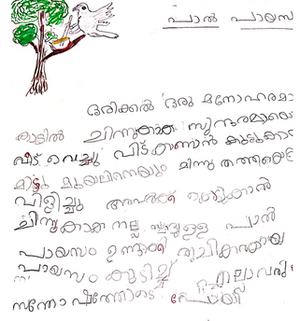 പാൽ പായസ
ഒരിക്കൽ ഒരു മനോഹരമാ
കാട്ടിൽ ചിന്നുകാക്ക സുന്ദരമായ
വീട് വെച്ചു വീട് കാണാൻ കൂട്ടുകാ
മിട്ടു മുയലിനെയും ചിന്നു തത്തയെ
വിളിച്ചു അവർക്ക് കുടിക്കാൻ
ചിന്നുകാക്ക നല്ല പാൽ
പായസം ഉണ്ടാക്കി രുചികരമായ
പായസം കുടിച്ച് എല്ലാവരു
സന്തോഷത്തോടെ പോയി